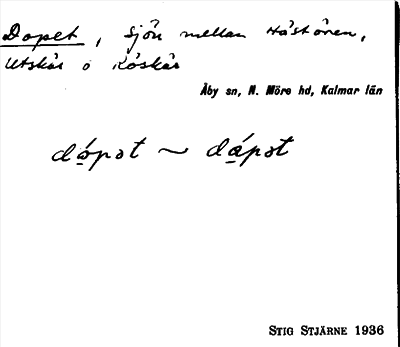 Dopet, sjön mellan Hästören,
Utskär o Röskär
Åby sn, N. Möre hd, Kalmar län
dó̱pət ~ dá̱pət
STIG STJÄRNE 1936